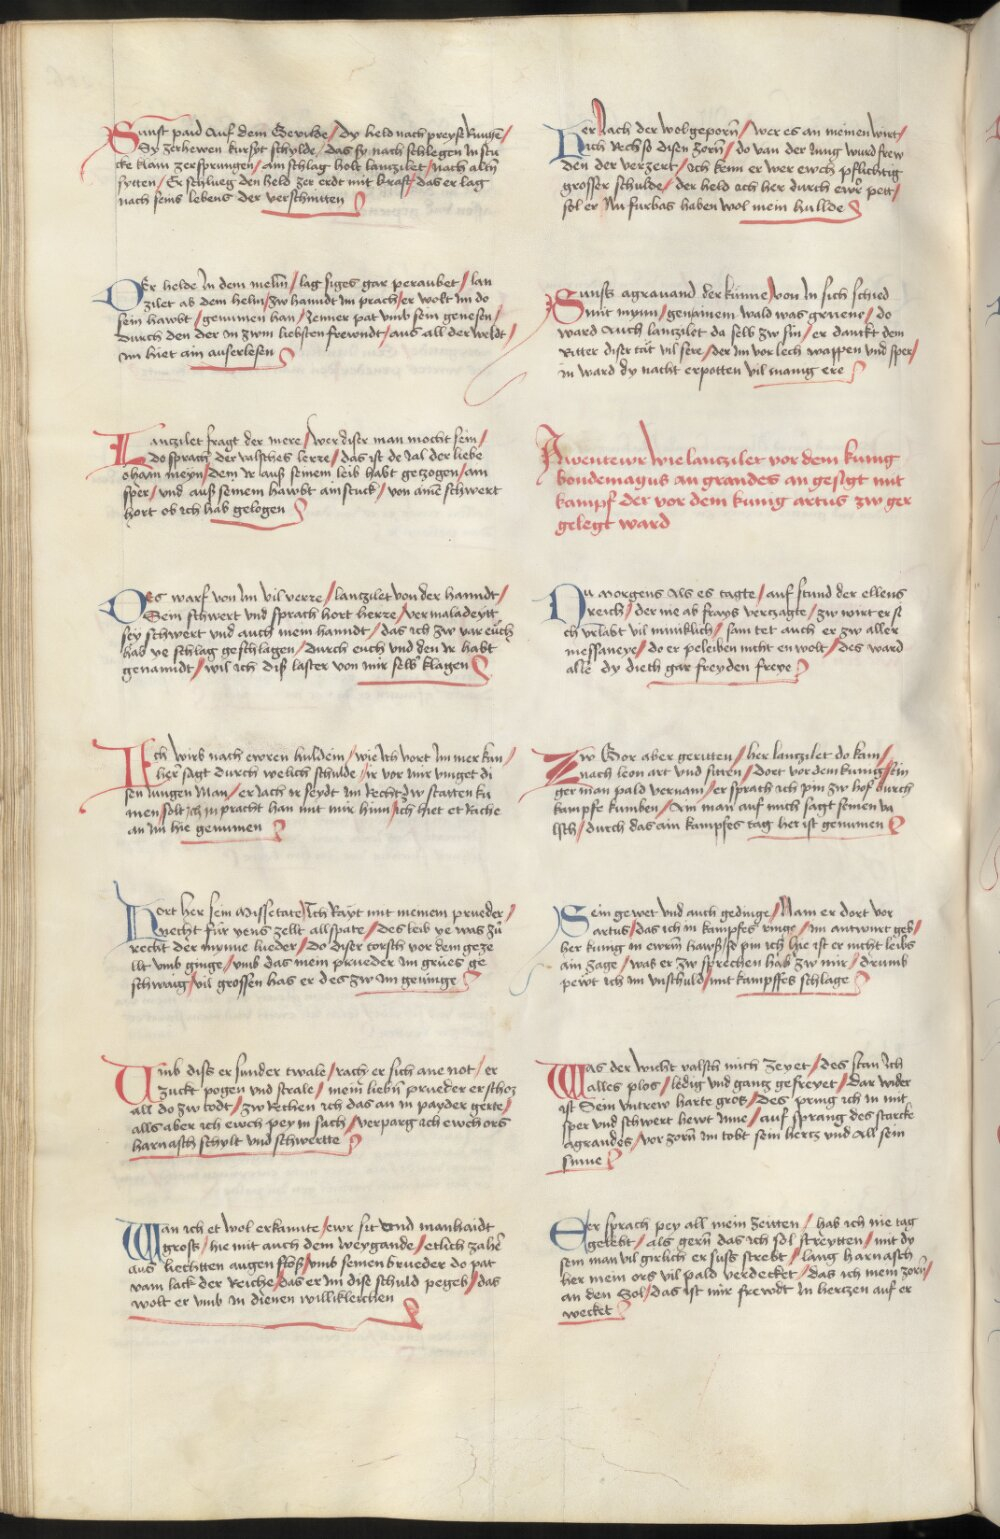 Sunst paid auf dem Gevilde / dy held nach preyse Rungen /
Sy zerhewen kursyt schylde / das sy nach schlegen In stu
cke klain zersprungen / ain schlag holt lanczilet / nach alten
sytten / Er schlueg den held zer erdt mit kraft / das er lag
nach seins lebens der verschniten
Der helde In dem meliu / lag siges gar peraubet / lan
zilet ab dem helm / zw hanndt Im prach / er wolt Im do
sein hawbt / genumen han / Jenner pat umb sein genesen /
durch den der In zwm liebsten frewndt / aus all der weldt /
Im hiet ain auserlesen
Lanczilet fragt der mere / wer diser man mocht sein /
do sprach der valsches lerre / das ist de Jal der liebe
ohaim meyn / dem Ir auß seinem leib habt geczogen / ain
sper / und auß seinem hawbt ain stuck / von ame schwert
hort ob ich hab gelogen
Des warf von Im vil verre / lanczilet von der hanndt /
Sein schwert und sprach hort herre / vermaladeytt
sey schwert und auch mein hanndt / das ich zw var euch
hab ye schlag geschlagen / durch euch und den Ir habt
genanndt / wil ich diß laster von mir selb klagen
Ich wirb nach ewren hulden / wie Ich vort Immer kan /
her sagt durch welich schulde / ir vor mir vinget di
sen Jungen Man / er Jach Ir seydt Im Recht zw statten ku
men / solt ich In pracht han mit mir hinn / ich hiet et Rache
an Im hie genumen
Hort her sein Missetate / Ich Rayt mit meinem prueder /
Necht fur yens zellt all spate / des leib ye was zu
recht der mynne lueder / do diser torsch vor dem geze
llt umb ginge / umb das mein prueder Im grues ge
schwaig / vil grossen has er des zw Im gevinge
Umb diss er sunder twale / rach er sich ane not / er
zuckt pogen und strale / mein lieben prueder er schoz
all do zw todt / zw Rechen ich das an In payder gerte /
alls aber ich ewch pey In sach / verparg ich ewch ors
harnasch schylt und schwertte
Wan ich et wol erkannte / ewr sit und manhaidt
gross / hie mit auch dem weygande / etlich zaher
aus liechtten augen floß / umb seinen brueder do pat
vam lack der Reiche / das er Im dise schuld pegeb / das
wolt er umb In dienen willikleichen
Her Jach der wolgeporn / wer es an meinen wirt /
Nich Rech so disen zorn / do van der Jung wurd frew
den der verzert / ich kenn er wer ewch pflichtig
grosser schulde / der held ich her durch ewr pett /
sol er Nu furbas haben wol mein hullde
Sunst agravand der kunne / von In sich schied
mit mynn / gen ainem wald was gruene / do
ward Auch lanzilet da selb zw sin / er danckt dem
Ritter diser tat vil sere / der Im vor lech wappen und sper /
In ward dy nacht erpotten vil manig ere
Awentewr wie lanczilet vor dem kunig
bondemagus an grandes an gesigt mit
kampf der vor dem kunig artus zw ger
gelegt ward
Nu Morgens als es tagte / auf stund der ellens
reich / der nie ab frays verzagte / zw wirt er si
ch urlabt vil mintklich / sam tet auch er zw aller
messaneye / do er peleiben nicht en wolt / des ward
alle dy dieth gar freyden freye
Zw Gor aber geritten / her lanczilet do kam /
nach leon art und sitten / dort vor dem kunig sein
ger man pald vernam / er sprach ich pin zw hof durch
kampfe kumben / Ain man auf mich sagt seinen va
lsch / durch das ain kampfes tag her ist genumen
Sein gewet und auch gedinge / Nam er dort vor
artus / das ich in kampfes ringe / im antwurt geb /
her kunig in ewrm hawß / so pin ich hie ist er nicht leibs
ain zage / was er zw sprechen hab zw mir / drumb
pewt ich Im unschuld / mit kampffes schlage
Was der wicht valsch mich zeyet / des stan ich
alles plos / ledig und gantz gefreyet / dar wider
ist Sein untrew harte gros / des pring ich in mit
sper und schwert hewt Inne / auf sprang des starcke
agrandes / vor zorn im tobt sein hertz und all sein
sinne
Er sprach pey all mein Zeitten / hab ich nie tag
gelebt / als gern das ich sol streytten / mit dy
sem man vil girlich er suss strebt / lang harnasch
her mein ors vil pald verdecket / das ich mein zorn /
an den Sol / das ist mir frewdt In herczen auf er
wecket